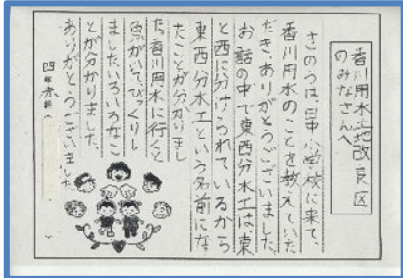 香川用水土地改良区
のみなさんへ
きのうは、田中小学校に来て、
香川用水のことを教えていた
だき、ありがとうございました。
お話の中で東西分水工は東
と西に分けられているから
東西分水工という名前になっ
たことが分かりまし
た。香川用水に行くと
魚がいて、びっくりし
ました。いろいろなこ
とが分かりました。
ありがとうございました。
四年